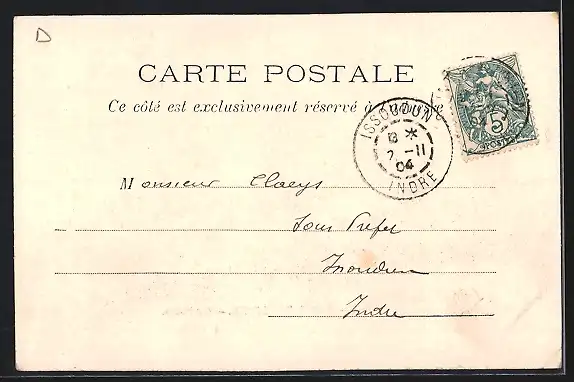 D
CARTE POSTALE
Ce côté est exclusivement réservé à l'adresse
ISSOUDUN
8 *
2 -11
04
INDRE
5
POSTES
Monsieur Claeys
Sous Préfet
Issoudun
Indre